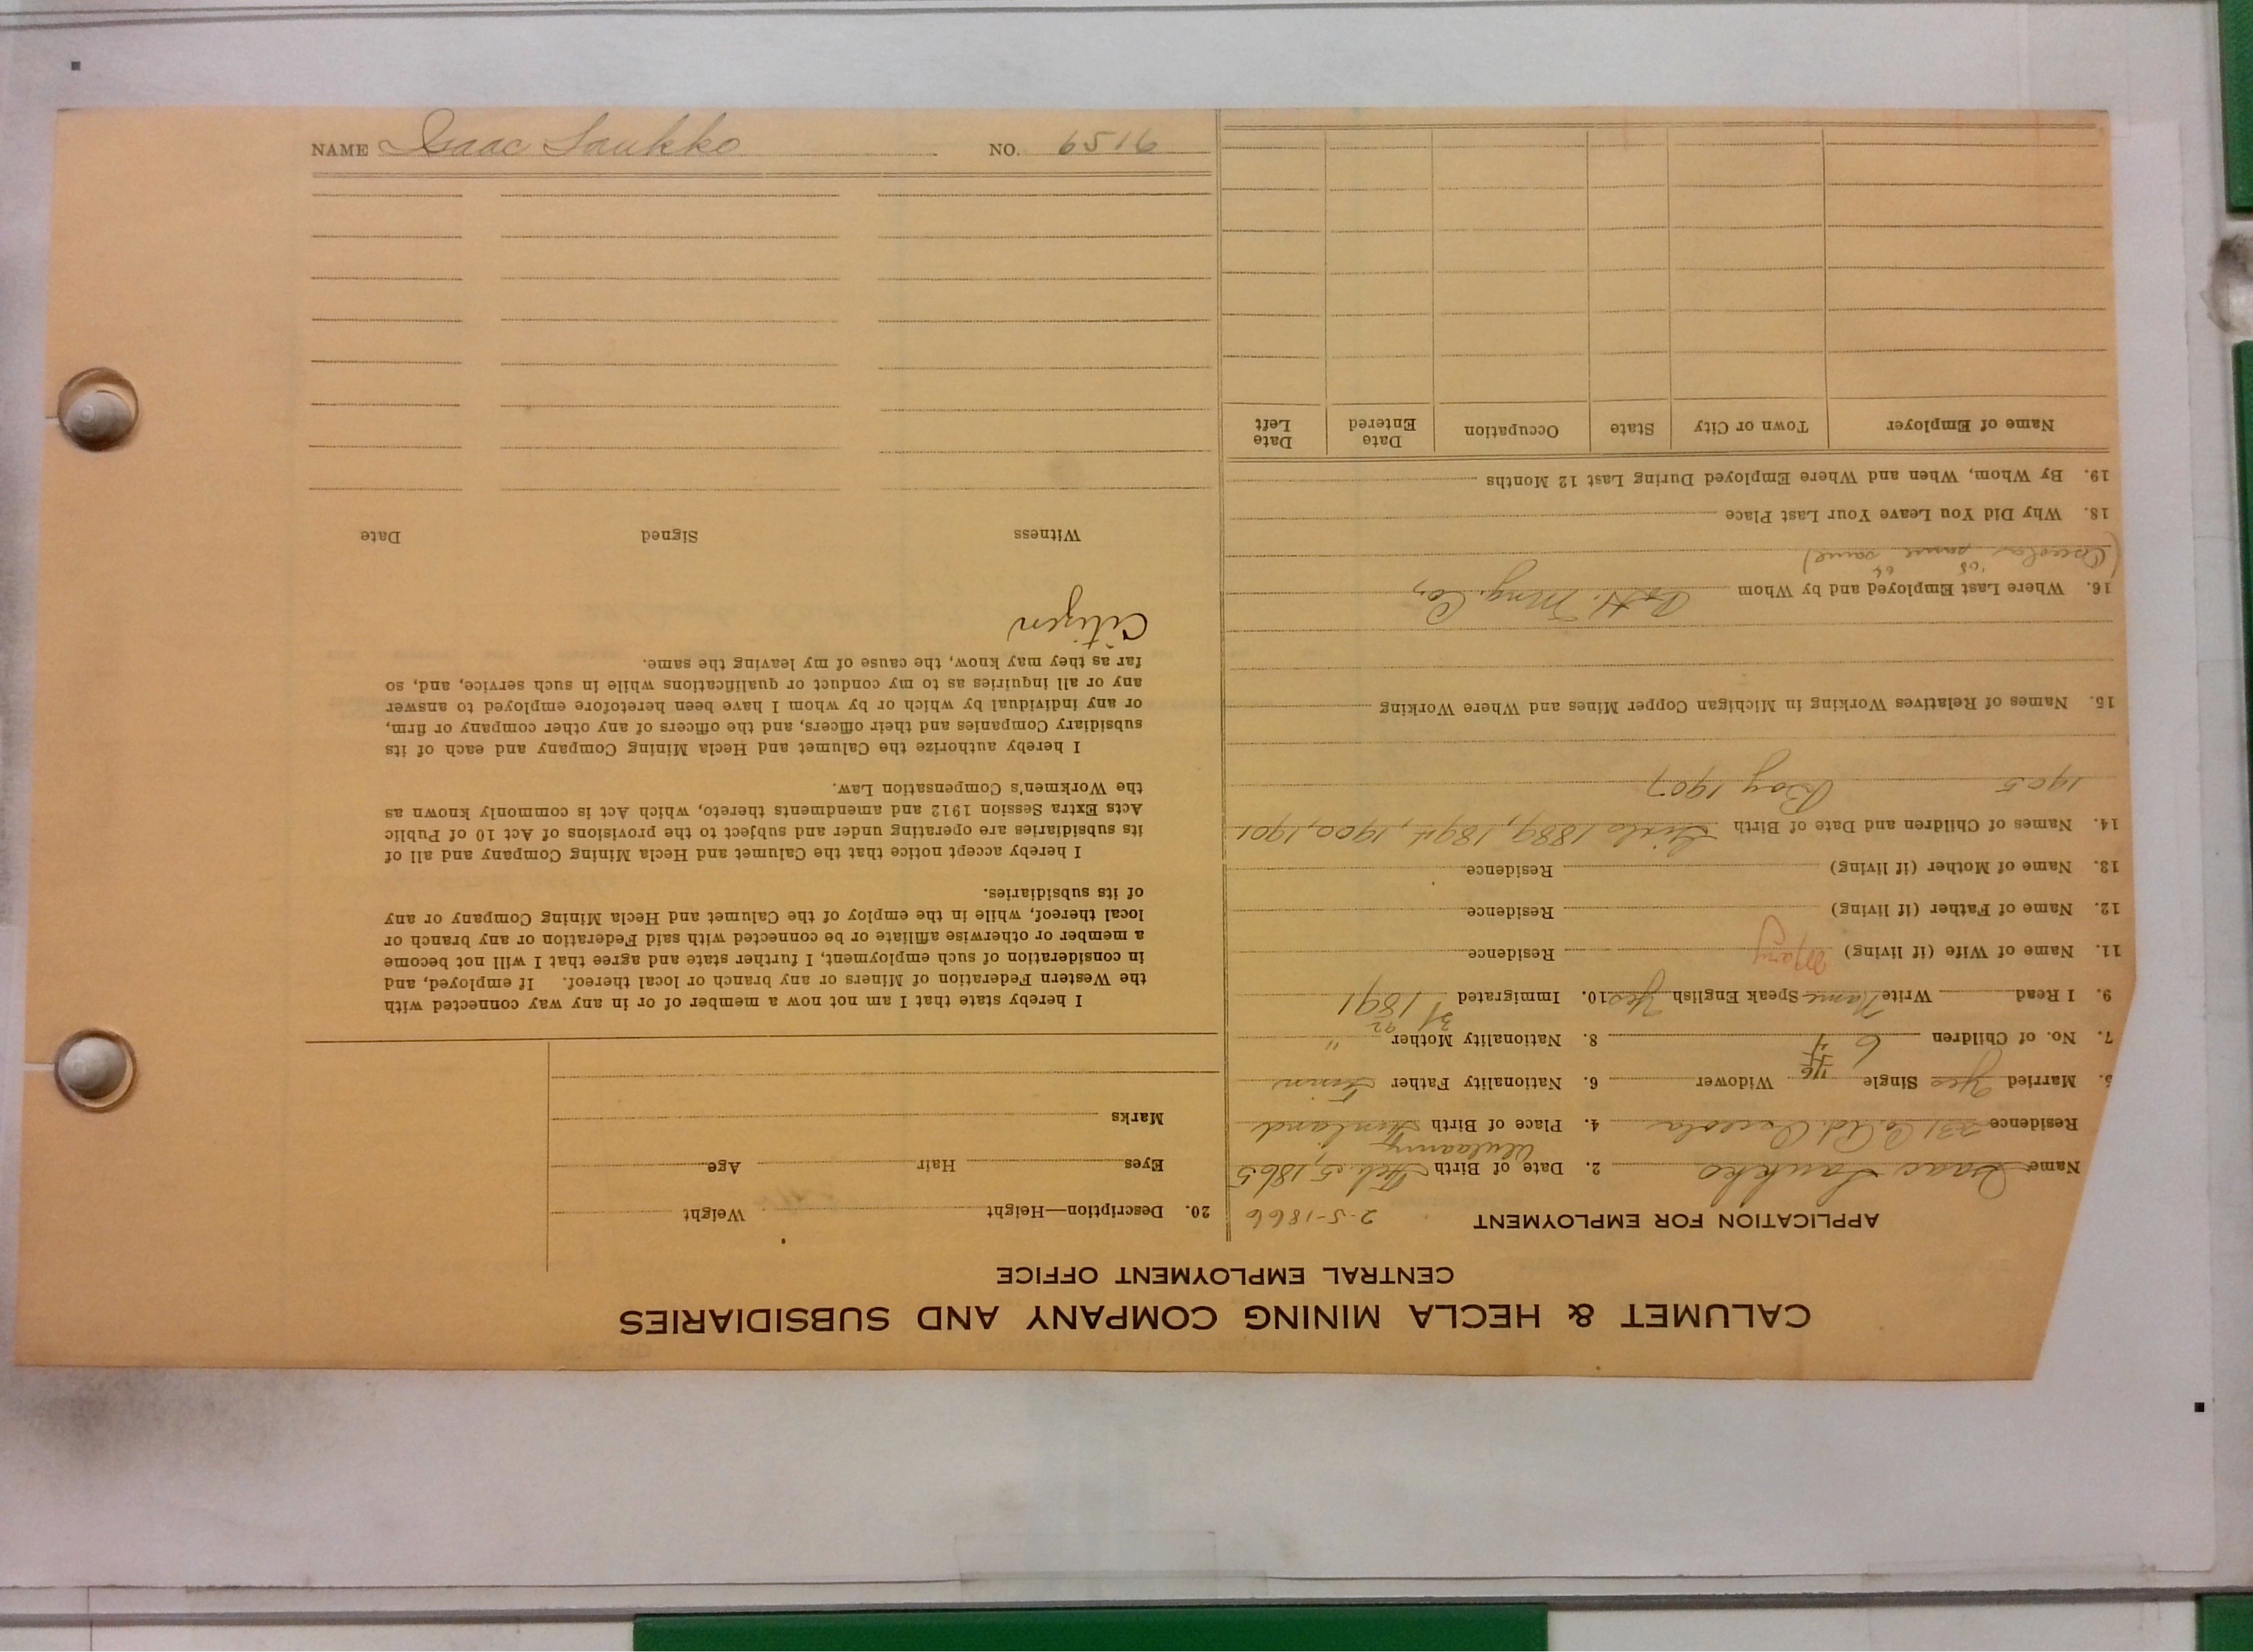 CALUMET & HECLA MINING COMPANY AND SUBSIDIARIES
CENTRAL EMPLOYMENT OFFICE
APPLICATION FOR EMPLOYMENT 2-5-1866
Name Isaac Saukko 2. Date of Birth Feb. 5, 1865
Residence 231 Osceola 4. Place of Birth Finland
5. Married Yes Single Widower 6. Nationality Father Finn
7. No. of Children 6 4 8. Nationality Mother "
9. I Read Write Name Speak English Yes 10. Immigrated 1891
11. Name of Wife (if living) Mary Residence
12. Name of Father (if living) Residence
13. Name of Mother (if living) Residence
14. Names of Children and Date of Birth Girls 1889, 1894, 1900, 1901
1905 Boy 1907
15. Names of Relatives Working in Michigan Copper Mines and Where Working
16. Where Last Employed and by Whom C & H. Mng. Co.,
(Osceola same same)
18. Why Did You Leave Your Last Place
19. By Whom, When and Where Employed During Last 12 Months
Name of Employer Town or City State Occupation Date Entered Date Left
20. Description—Height Weight
Eyes Hair Age
Marks
I hereby state that I am not now a member of or in any way connected with
the Western Federation of Miners or any branch or local thereof. If employed, and
in consideration of such employment, I further state and agree that I will not become
a member or otherwise affiliate or be connected with said Federation or any branch or
local thereof, while in the employ of the Calumet and Hecla Mining Company or any
of its subsidiaries.
I hereby accept notice that the Calumet and Hecla Mining Company and all of
its subsidiaries are operating under and subject to the provisions of Act 10 of Public
Acts Extra Session 1912 and amendments thereto, which Act is commonly known as
the Workmen's Compensation Law.
I hereby authorize the Calumet and Hecla Mining Company and each of its
subsidiary Companies and their officers, and the officers of any other company or firm,
or any individual by which or by whom I have been heretofore employed to answer
any or all inquiries as to my conduct or qualifications while in such service, and, so
far as they may know, the cause of my leaving the same.
Citizen
Witness Signed Date
NAME Isaac Saukko NO. 6516